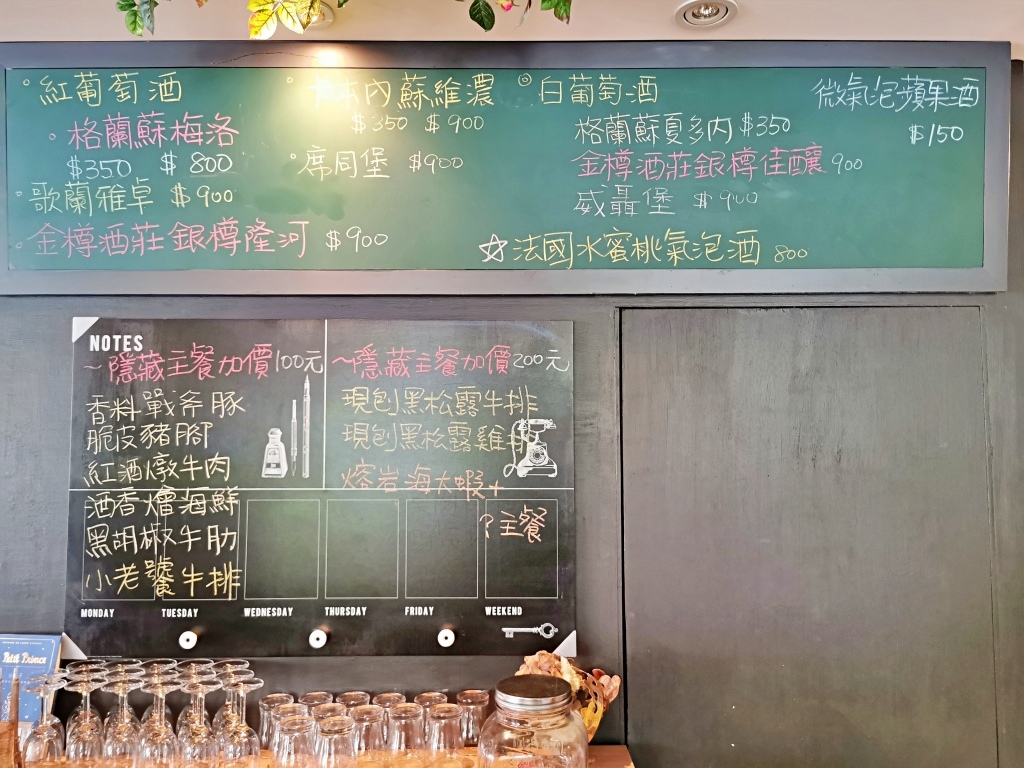 紅葡萄酒
格蘭蘇梅洛
$350 $800
歌蘭雅卓 $900
金樽酒莊銀樽隆河 $900
本內蘇維濃
$350 $900
席同堡 $900
白葡萄酒
格蘭蘇夏多內 $350
金樽酒莊銀樽佳釀 900
威聶堡 $900
☆法國水蜜桃氣泡酒 800
微氣泡蘋果酒
$150
NOTES
~隱藏主餐加價100元
香料戰斧豚
脆皮豬腳
紅酒燉牛肉
酒香燴海鮮
黑胡椒牛肋
小老饕牛排
~隱藏主餐加價200元
現刨黑松露牛排
現刨黑松露雞
熔岩海大蝦+
?主餐
MONDAY TUESDAY WEDNESDAY THURSDAY FRIDAY WEEKEND
Petit Prince